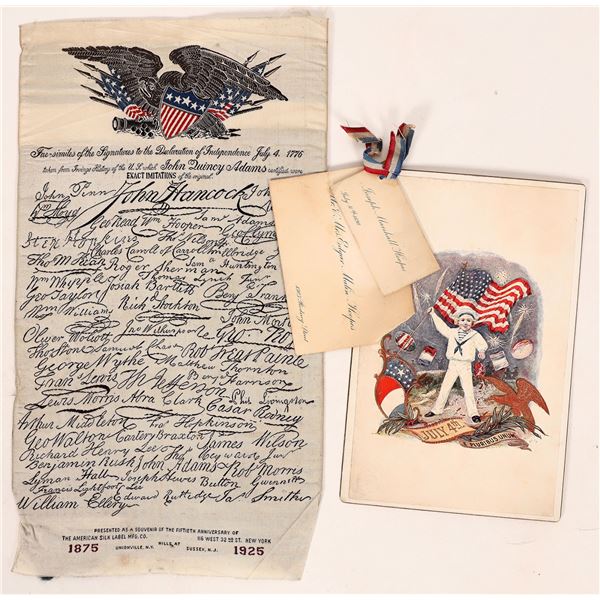 Fac-similes of the Signatures to the Declaration of Independence July 4. 1776
taken from Irvings History of the U.S. which John Quincy Adams certified were
EXACT IMITATIONS of the original.
John Penn John Hancock John
Wm Floyd
Geo Read Wm Hooper Sam Adams
Step Hopkins Geo Clymer
Charles Carroll of Carrollton
Tho M:Kean Roger Sherman Sam Huntington
Wm Whipple Thomas Lynch
Geo Taylor Josiah Bartlett Benj Franklin
Wm Williams Richd Stockton John Morton
Oliver Wolcott Jno Witherspoon
Tho Stone Samuel Chase Robt Treat Paine
George Wythe Matthew Thornton
Frans Lewis Th Jefferson Benj Harrison
Lewis Morris Abra Clark Phil Livingston
Casar Rodney
Arthur Middleton Fras Hopkinson
Geo Walton Carter Braxton James Wilson
Richard Henry Lee Thos Heyward Junr
Benjamin Rush John Adams Robt Morris
Lyman Hall Joseph Hewes Button Gwinnett
Francis Lightfoot Lee
Edward Rutledge Jas Smith
William Ellery
PRESENTED AS A SOUVENIR OF THE FIFTIETH ANNIVERSARY OF
THE AMERICAN SILK LABEL MFG. CO. 116 WEST 32 ND ST. NEW YORK
1875 UNIONVILLE, N.Y. MILLS AT SUSSEX, N.J. 1925
Joseph Marshall
July
Mr. & Mrs. Edgar
JULY 4th
E PLURIBUS UNUM